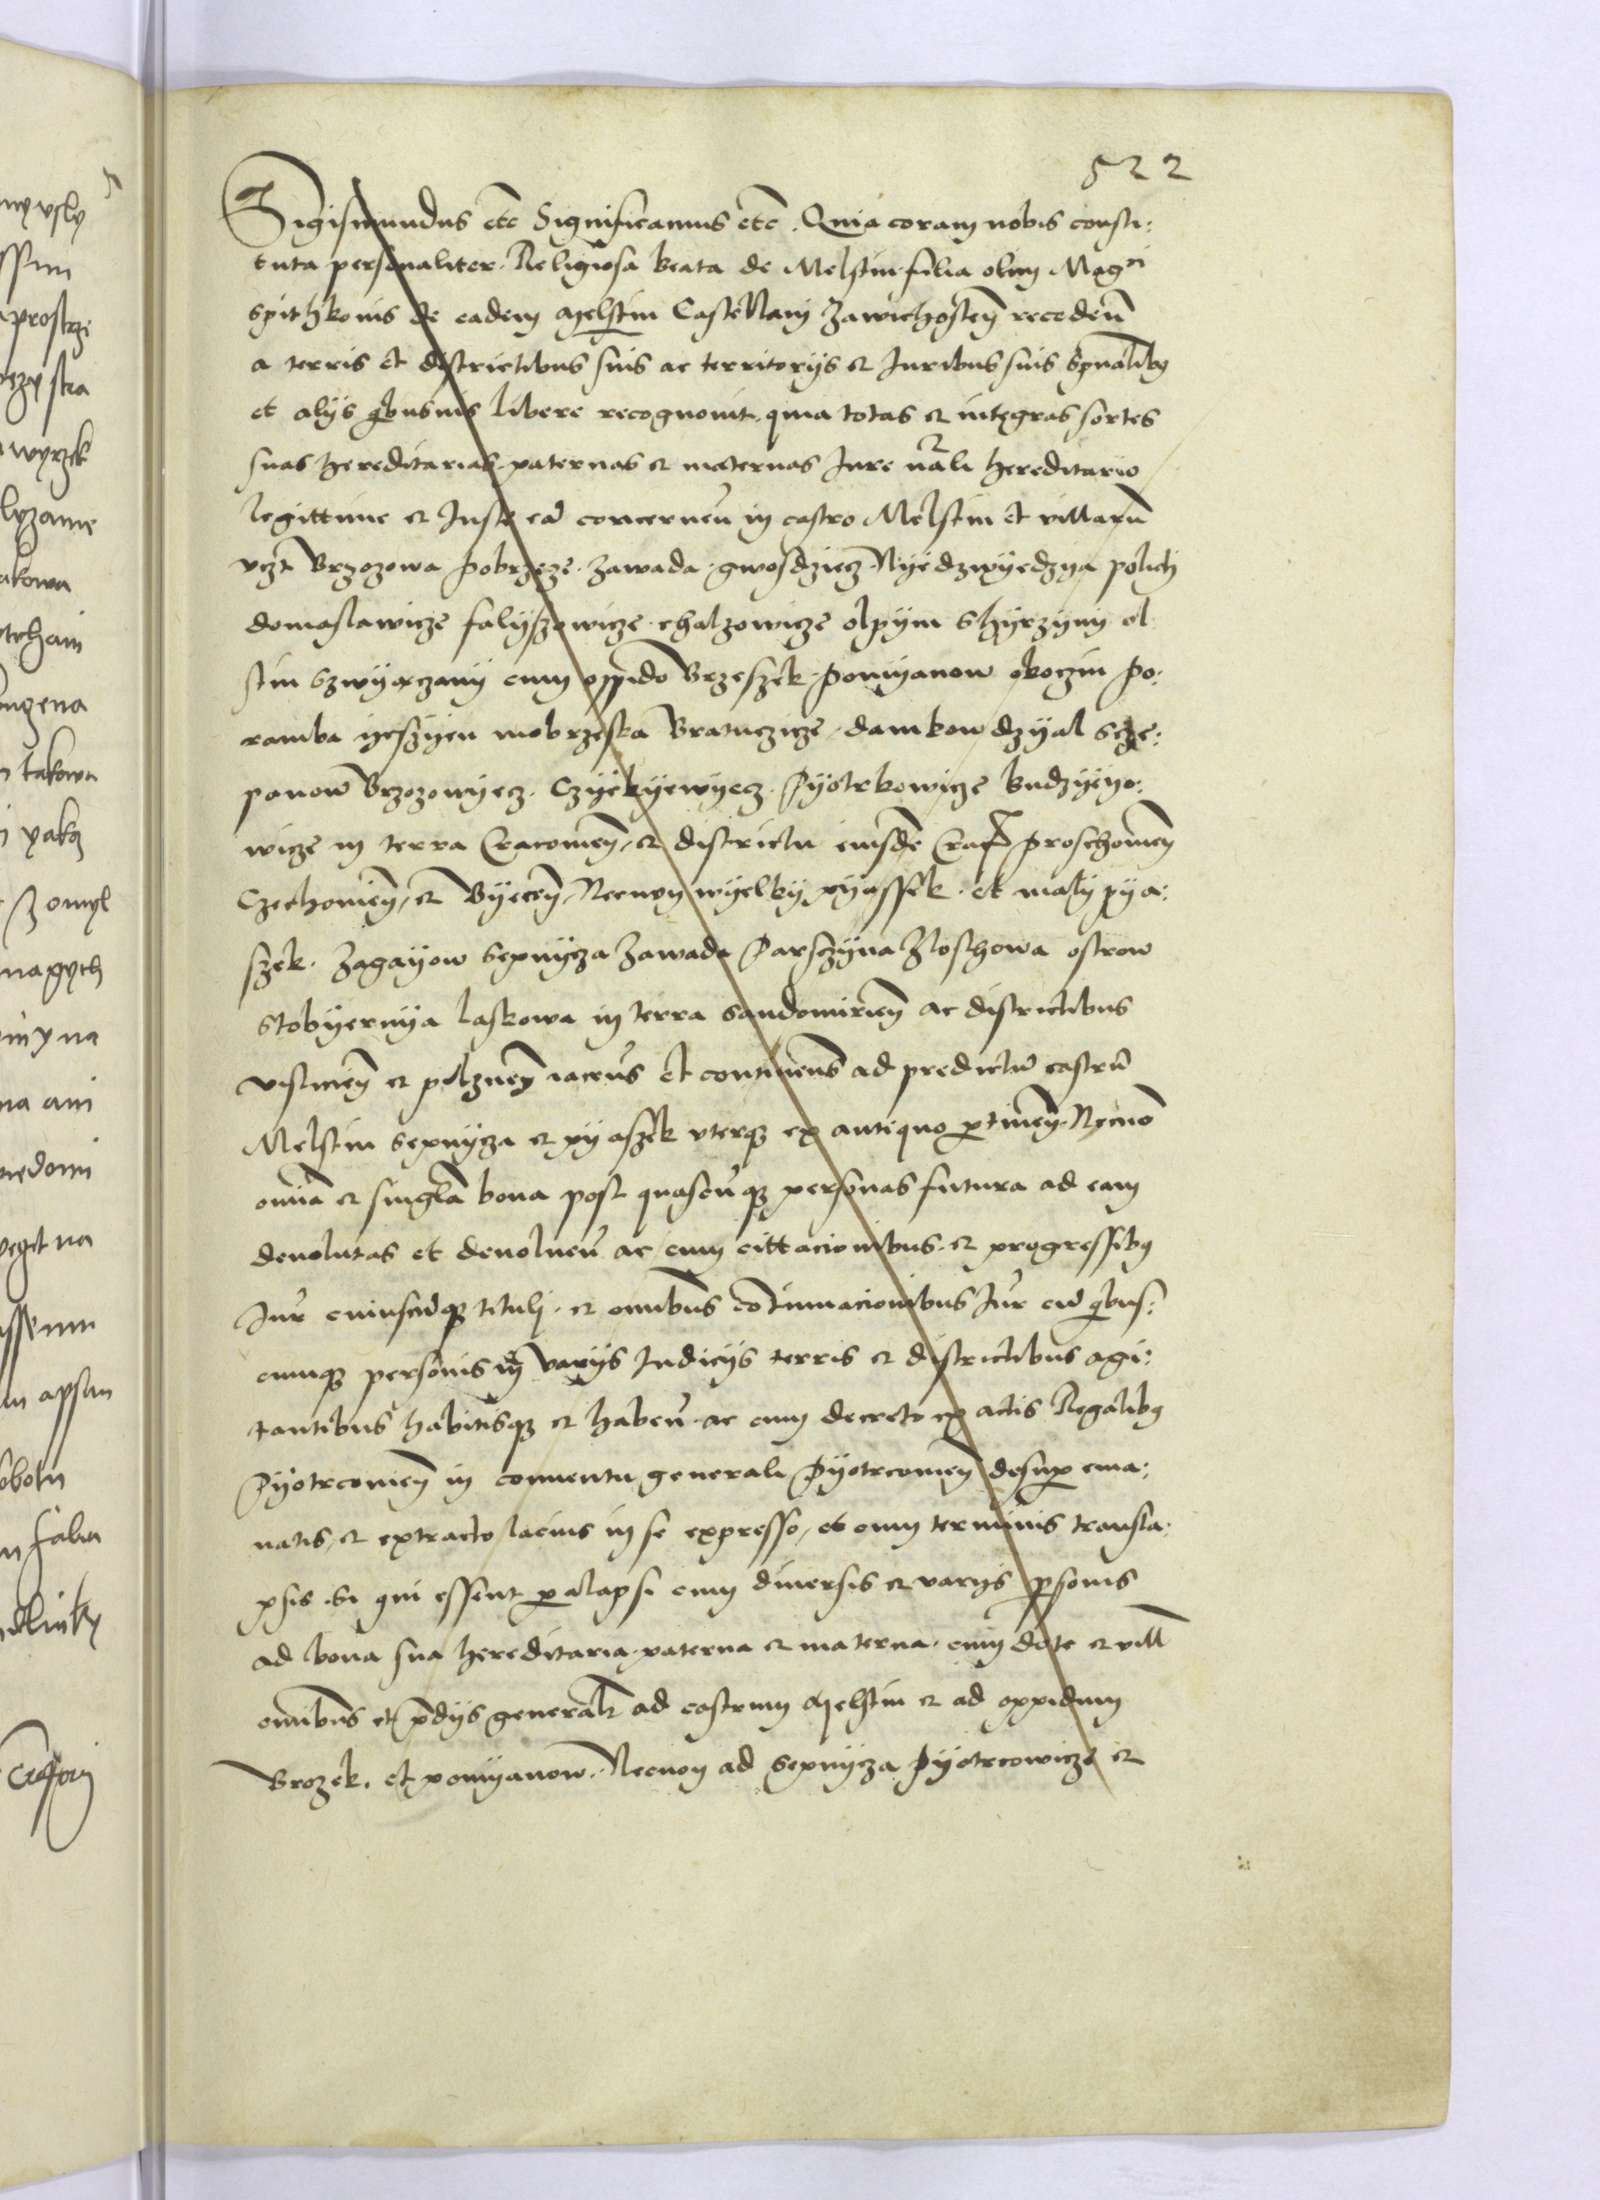 522
Sigismundus etc Significamus etc. Quia coram nobis consti:
tuta personaliter. Religiosa beata de Melstin filia olim Magci
Spithkonis de eadem Melstin Castellani Zawichosten receden
a terris et districtibus suis ac territorijs et Juribus suis spualibq
et alijs qbusuis libere recognouit. quia totas et integras sortes
suas hereditarias. paternas et maternas Jure nrali hereditario
legittime et Juste ead concernen in castro Melstin et villarum
vczt Brzozowa pobrzeze. Zawada. gwosdziecz. Nyedzwyedzya polich
domaslawicze falyszowicze. chalzowicze olpyni Shyrzyny ol
stin Szwyarczany cum oppido Brzeszek. pomyanow okoczin po:
ramba yeszyen mobrzeska Bratuczicze. damkow dzyal Scze:
panow Brzozowyecz. Czyekyewyecz. Pyotrkowicze budzyeyo:
wicze in terra Cracouien, et districtu eiusde Crac proschouien
Czechouien, et Byecen, Necnon wyelky pyassek. et maly pya:
szek. Zagayow Sepnycza Zawada Parsczyna Zloschowa ostrow
Stobyernya laskowa in terra Sandomirien ac districtibus
visliciens et pilznen iacens et continens ad predictum castrum
Melstin Sepnycza et pyaszek vterqz ex antiquo ptinen. Necno
omia et singla bona post quascunqz personas futura ad eam
deuolutas et deuoluen ac cum cittacionibus. et progressibq
Jur cuiuscunqz tituli. et omnibus continuacionibus Jur cum qbus:
cunqz personis in varijs Judicijs terris et districtibus agi:
tantibus habitisqz et haben. ac cum decreto ex actis Regalibq
Pyotrcouien in conuentu generali Pyotrcouien desup ema:
natis, et extracto lacius in se expresso, et cum terminis transla:
psis. Si qui essent palapsi cum diuersis et varijs psonis
ad bona sua hereditaria. paterna et materna. cum dote et vill
omnibus et pdijs generalr ad castrum Melstin et ad oppidum
Brozek. et pomyanow. Necnon ad Sepnycza Pyotrcowicze et